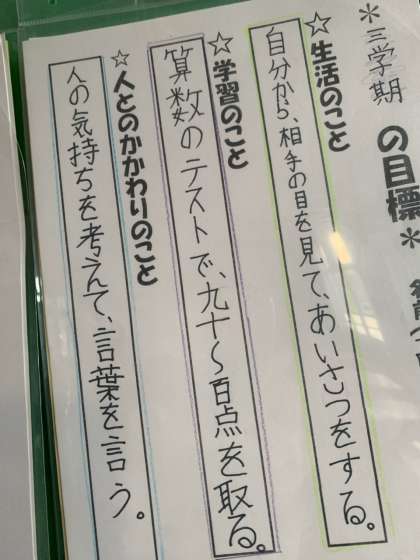 ＊三学期の目標＊
☆生活のこと
自分から、相手の目を見て、あいさつをする。
☆学習のこと
算数のテストで、九十〜百点を取る。
☆人とのかかわりのこと
人の気持ちを考えて、言葉を言う。